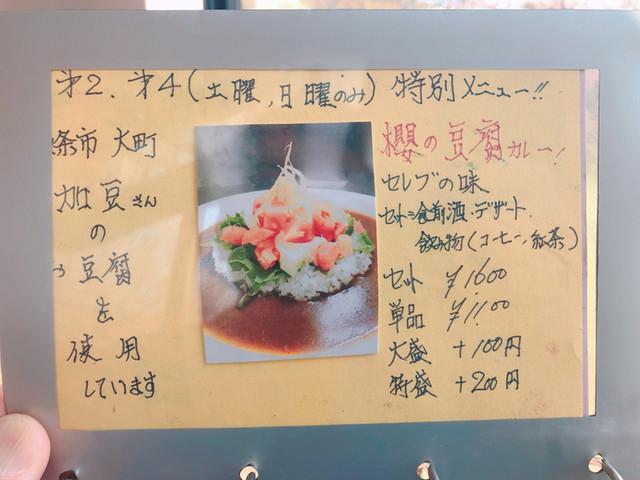 第2.第4(土曜,日曜のみ) 特別メニュー!!
条市 大町
加豆さん
の
豆腐
を
使用
しています
櫻の豆腐カレー!
セレブの味
セット=食前酒・デザート
飲み物(コーヒー,紅茶)
セット ¥1600
単品 ¥1100
大盛 +100円
特盛 +200円